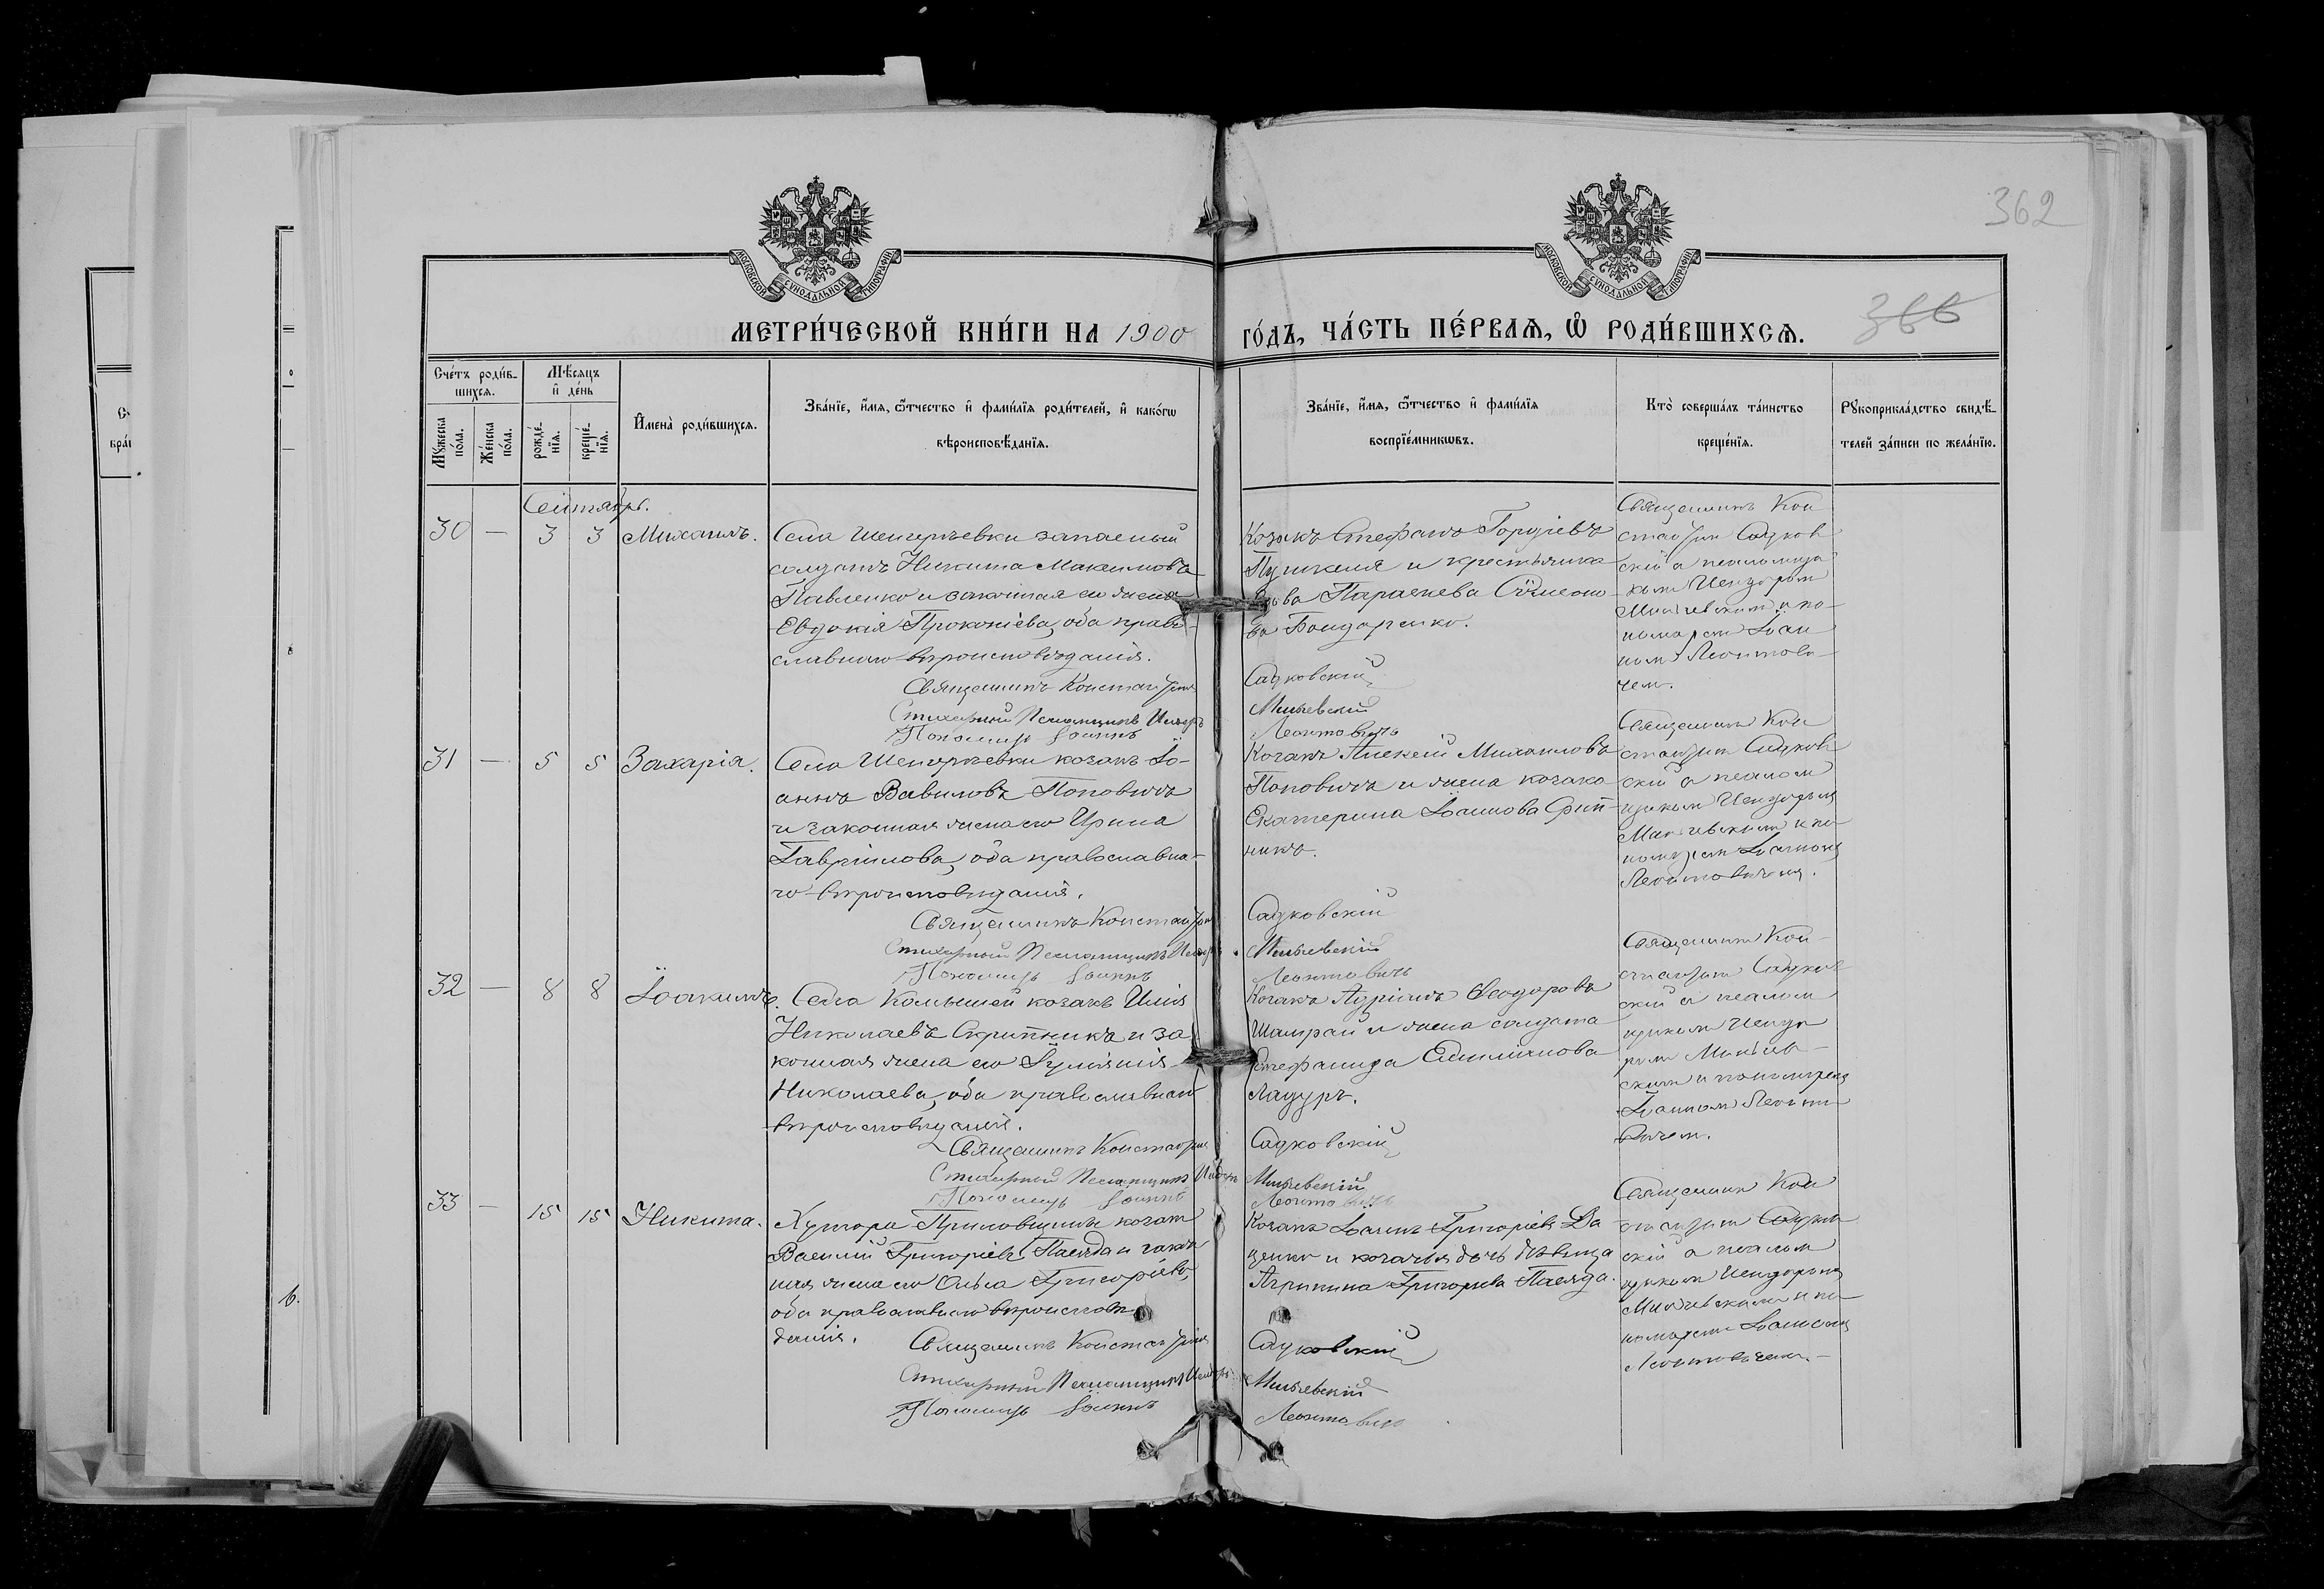 362
МОСКОВСКОЙ СѴНОДАЛЬНОЙ ТИПОГРАФІИ
МОСКОВСКОЙ СѴНОДАЛЬНОЙ ТИПОГРАФІИ
МЕТРИ́ЧЕСКОЙ КНИ́ГИ НА 1900 ГО́ДЪ, ЧА́СТЬ ПЕ́РВАѦ, Ѡ҆ РОДИ́ВШИХСѦ.
366
Сче́тъ роди́в-
шихсѧ.
Мѣ́сѧцъ
и҆ де́нь
Мꙋ́жеска
по́ла.
Же́нска
по́ла.
рожде́-
нїѧ.
креще́-
нїѧ.
И҆мена̀ роди́вшихсѧ.
Зва́нїе, и҆́мѧ, ѻ҆́тчество и҆ фами́лїѧ роди́телей, и҆ како́гѡ
вѣроисповѣ́данїѧ.
Зва́нїе, и҆́мѧ, ѻ҆́тчество и҆ фами́лїѧ
воспрїе́мникѡвъ.
Кто̀ соверша́лъ та́инство
креще́нїѧ.
Рꙋкоприкла́дство свидѣ́-
телей за́писи по жела́нїю.
Сентябрь.
30 — 3 3 Михаилъ.
Села запасный
солдатъ Никита Максимовъ
Павленко и законная его жена
Евдокія Прокопіева, оба право-
славнаго вѣроисповѣданія.
Священникъ Константинъ
Стихарный Псаломщикъ Исидоръ
Пономарь Іоаннъ
Козакъ Стефанъ Гордіевъ
и крестьянка
Параскева Симеоно-
ва Бондаренко.
Садковскій
Миньевскій
Леонтовичъ
Священникъ Кон
стантин Садков
скій с псаломщи
ком Исидором
Миньевским и по-
номарем Іоан
ном Леонтови
чем.
31 — 5 5 Захарія.
Села козакъ Іо-
аннъ Вавиловъ Поповичъ
и законная жена его Ирина
Гавріилова, оба православна-
го вѣроисповѣданія.
Священникъ Константин
Стихарный Псаломщикъ Исидоръ
Пономарь Іоаннъ
Козакъ Алексій Михаиловъ
Поповичъ и жена козака
Екатерина Іоаннова Скрип-
никъ.
Садковскій
Миньевскій
Леонтовичъ
Священник Кон
стантин Садков
скій с псалом
щиком Исидором
Миньевским и по
номарем Іоанном
Леонтовичем.
32 — 8 8 Іоакимъ.
Села Комышей козакъ Илія
Николаевъ Скрипникъ и за
конная жена его Іуліанія
Николаева, оба православнаго
вѣроисповѣданія.
Священникъ Константин
Стихарный Псаломщикъ Исидоръ
Пономарь Іоаннъ
Козакъ Адріанъ Ѳеодоровъ
Шамрай и жена солдата
Стефанида Емиліанова
Ладуръ.
Садковскій
Миньевскій
Леонтовичъ
Священник Кон-
стантин Садков
скій с псалом
щиком Исидо
ром Миньев-
ским и пономарем
Іоанном Леонто
вичем.
33 — 15 15 Никита.
Хутора козак
Василій Григоріевъ и закон
ная жена его Ольга Григоріева,
оба православнаго вѣроисповѣ
данія.
Священникъ Константин
Стихарный Псаломщикъ Исидоръ
Пономарь Іоаннъ
Козакъ Іоаннъ Григоріевъ Да
ценко и козачья дочь дѣвица
Агрипина Григорьева
Садковскій
Миньевскій
Леонтовичъ
Священник Кон
стантин Садков
скій с псалом
щиком Исидором
Миньевским и по
номарем Іоанном
Леонтовичем.